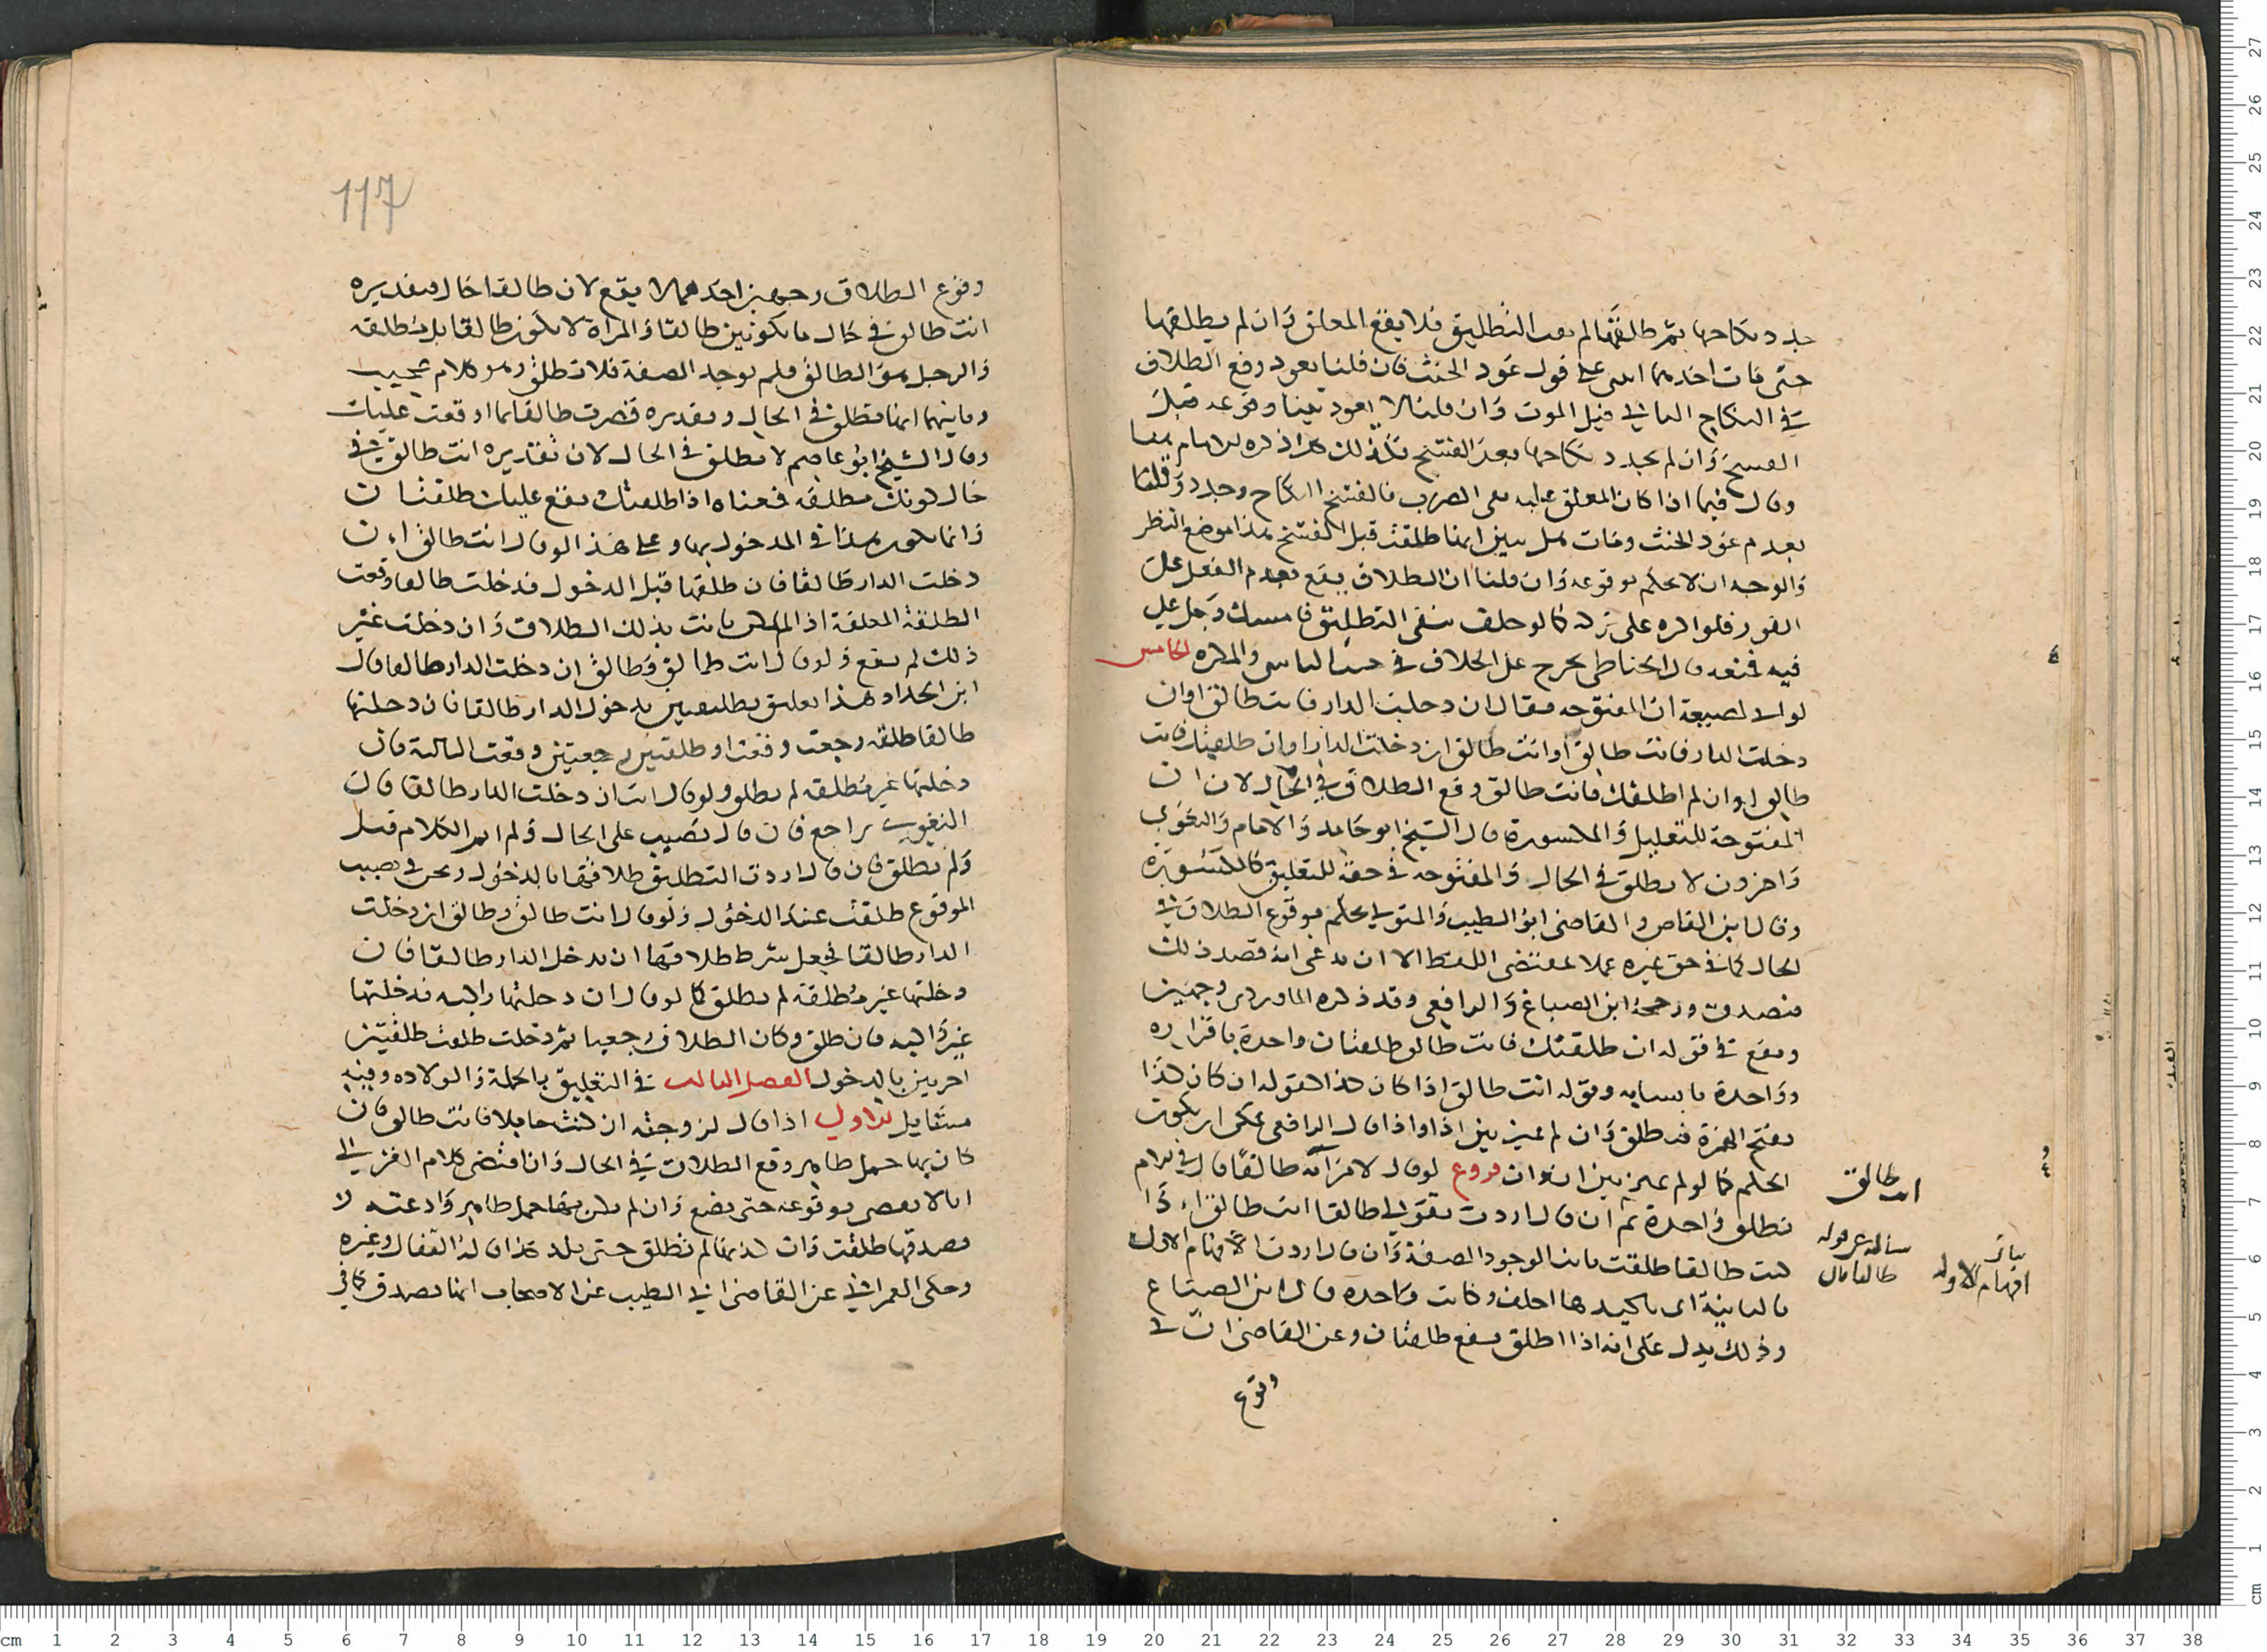 جدد نكاحها ثم طلقها لم يعد التطليق فلا يقع المعلق وان لم يطلقها
حتى مات احدهما انبنى على قول عود الحنث فان قلنا يعود وقع الطلاق
في النكاح الثاني قبيل الموت وان قلنا لا يعود تبينا وقوعه قبل
الفسخ وان لم يجدد نكاحها بعد الفسخ فكذلك هكذا ذكره الامام
وقال فيما اذا كان المعلق عليه نفي الضرب فانفسخ النكاح وجدد وقلنا
بعدم عود الحنث ومات هل يتبين انها طلقت قبل الفسخ هذا موضع النظر
والوجه ان لا يحكم بوقوعه وان قلنا ان الطلاق يقع بعدم الفعل على
الفور فلو اكره على تركه كما لو حلف بنفي التطليق فامسك رجل على
فيه فمنعه قال الحناطي يخرج على الخلاف في حنث الناسي والمكره الخامس
لو اتى بصيغة ان المفتوحة فقال ان دخلت الدار فانت طالق او ان
دخلت الدار فانت طالق او انت طالق ان دخلت الدار او ان طلقتك فانت
طالق او ان لم اطلقك فانت طالق وقع الطلاق في الحال لان ان
المفتوحة للتعليل والمكسورة قال الشيخ ابو حامد والامام والبغوي
واخرون لا يطلق في الحال والمفتوحة في حقه للتعليق كالمكسورة
وقال ابن القاص والقاضي ابو الطيب والمتولي يحكم بوقوع الطلاق في
الحال كما في حق غيره عملا بمقتضى اللفظ الا ان يدعي انه قصد ذلك
فيصدق ورجحه ابن الصباغ والرافعي وقد ذكره الماوردي وجهين
ويقع في قوله ان طلقتك فانت طالق طلقتان واحدة باقراره
وواحدة بانشائه وقوله انت طالق اذا كان كذا كقوله ان كان كذا
بفتح الهمزة فتطلق وان لم يميز بين اذا واذا قال الرافعي يمكن ان يكون
الحكم كما لو لم يميز بين ان وان فروع لو قال لامرأته طالقا قال
تطلق واحدة ثم ان قال اردت بقولي طالقا انت طالق اذا
كنت طالقا طلقت ثانيا لوجود الصفة وان قال اردت افهام الاولى
بالثانية او تاكيدها احلف وكانت واحدة قال ابن الصباغ
وذلك يدل على انه اذا اطلق يقع طلقتان وعن القاضي ان في
وقوع
انت طالق
مسألة في قوله
طالقا قال
افهام الاولى
117
وقوع الطلاق وجهين احدهما لا يقع لان طالقا حال وتقديره
انت طالق في حال ما تكونين طالقا والمراة لا تكون طالقا بل مطلقة
والرجل هو الطالق فلم توجد الصفة فلا تطلق وهو كلام عجيب
وثانيهما انها تطلق في الحال وتقديره فصرت طالقا بما اوقعت عليك
وقال الشيخ ابو عاصم لا تطلق في الحال لان تقديره انت طالق في
حال كونك مطلقة فمعناه اذا طلقتك يقع عليك طلقتان
وانما يكون هذا في المدخول بها وعلى هذا لو قال انت طالق ان
دخلت الدار طالقا فان طلقها قبل الدخول فدخلت طالقا وقعت
الطلقة المعلقة اذا لم تكن بانت بذلك الطلاق وان دخلت غير
ذلك لم يقع ولو قال انت طالق وطالق ان دخلت الدار طالقا قال
ابن الحداد هذا تعليق تطليقتين بدخول الدار طالقا فان دخلتها
طالقا طلقة رجعت وقعتا او طلقتين رجعيتين وقعت الثالثة فان
دخلتها غير مطلقة لم تطلق ولو قال انت ان دخلت الدار طالقا قال
البغوي يراجع فان قال نصبت على الحال ولم اتم الكلام قبل
ولم تطلق فان قال اردت التطليق طلاقها بالدخول ونحن في نصب
الموقوع طلقت عند الدخول ولو قال انت طالق وطالق ان دخلت
الدار طالقا فجعل شرط طلاقها ان تدخل الدار طالقا فان
دخلتها غير مطلقة لم تطلق كما لو قال ان دخلتها راكبة فدخلتها
غير راكبة فان طلق وكان الطلاق رجعيا ثم دخلت طلقت طلقتين
اخريين بالدخول الفصل الثالث في التعليق بالحمل والولادة وفيه
مسائل الاولى اذا قال لزوجته ان كنت حاملا فانت طالق فان
كان بها حمل ظاهر وقع الطلاق في الحال وان اقتضى كلام الغزالي
انه لا يقضي بوقوعه حتى تضع وان لم يكن بها حمل ظاهر وادعته لا
وصدقها طلقت وان كذبها لم تطلق حتى تلد هكذا قاله القفال وغيره
وحكى العمراني عن القاضي ابي الطيب عن الاصحاب انها تصدق كما في